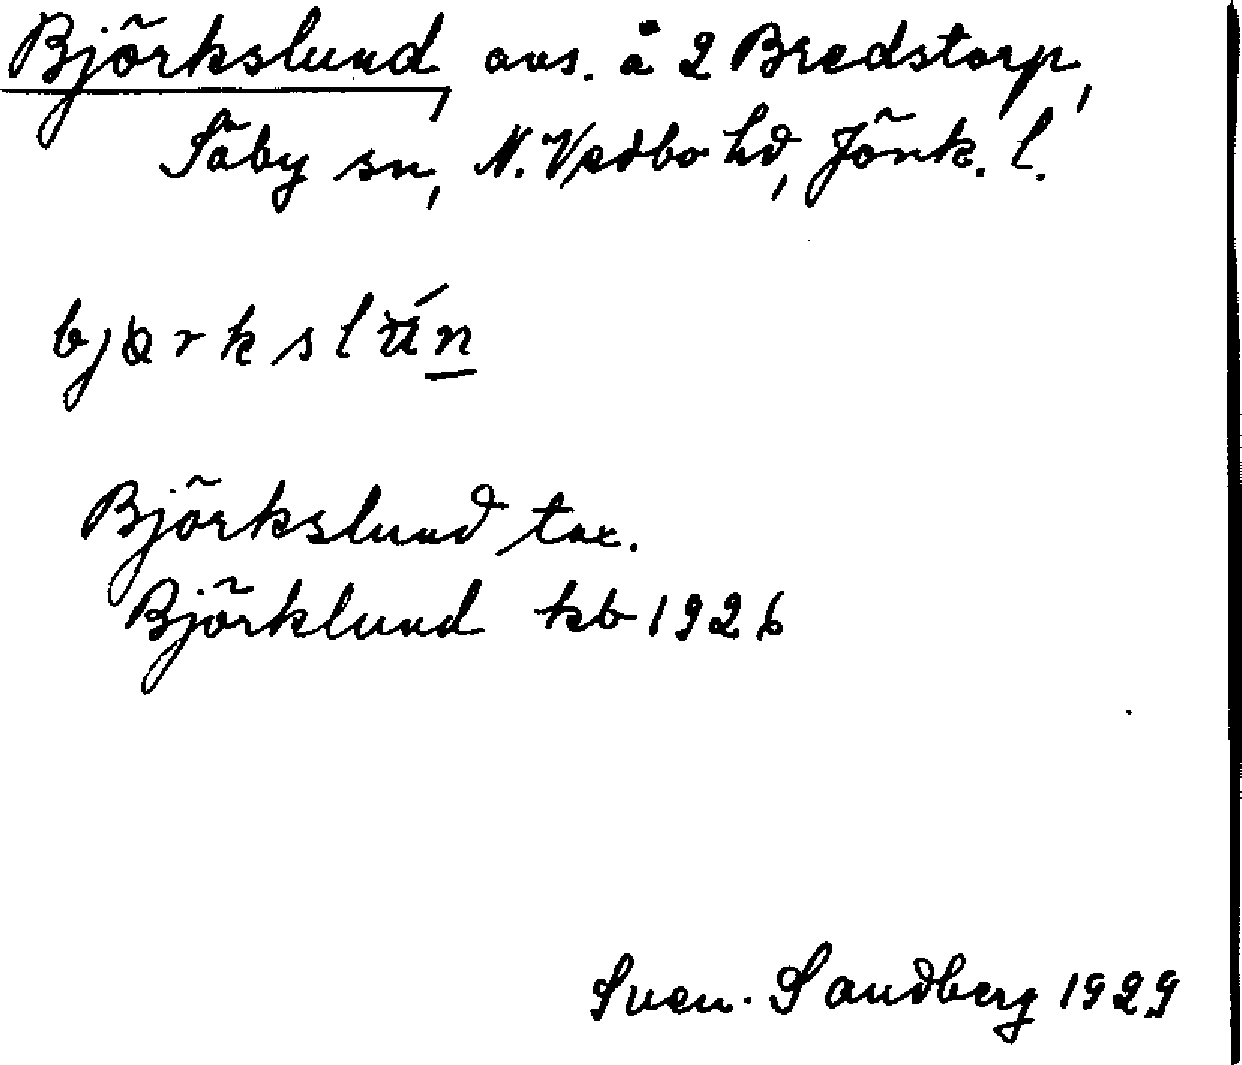 Björkslund, avs. å 2 Bredstorp,
Säby sn, N. Vedbo hd, Jönk. l.
björkslún
Björkslund tax.
Björklund kb 1926
Sven Sandberg 1929